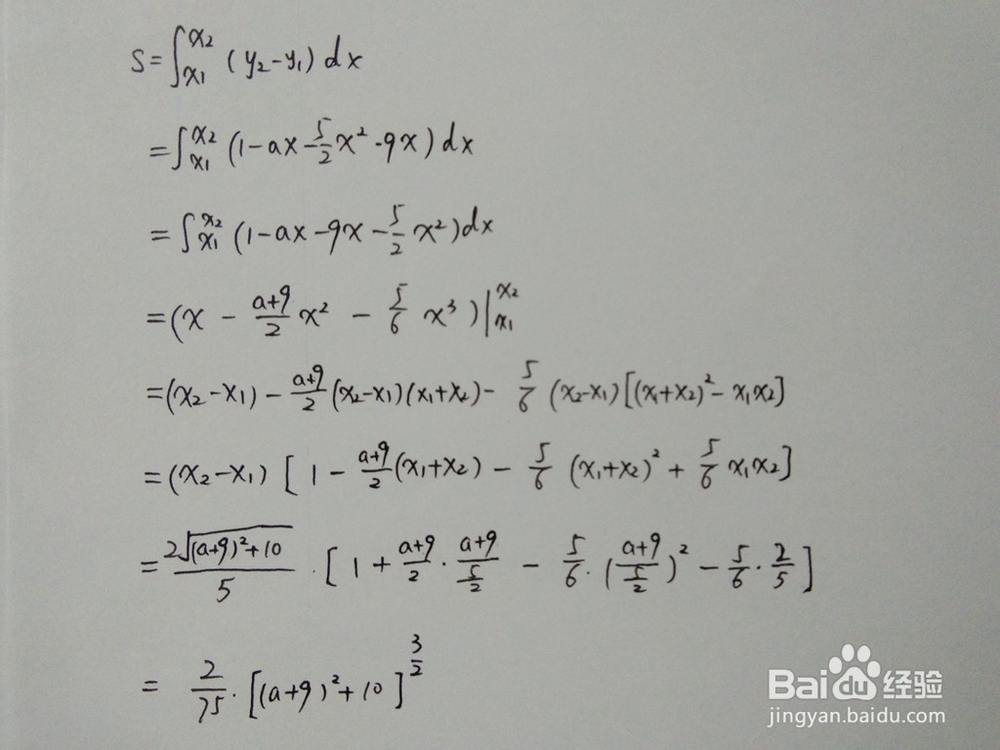 S=∫_{x1}^{x2} (y₂-y₁) dx
=∫_{x1}^{x2} (1-ax-\frac{5}{2}x²-9x) dx
=∫_{x1}^{x2} (1-ax-9x-\frac{5}{2}x²)dx
=(x - \frac{a+9}{2}x² - \frac{5}{6}x³)|_{x1}^{x2}
=(x₂-x₁) - \frac{a+9}{2}(x₂-x₁)(x₁+x₂) - \frac{5}{6}(x₂-x₁)[(x₁+x₂)²-x₁x₂]
=(x₂-x₁)[1 - \frac{a+9}{2}(x₁+x₂) - \frac{5}{6}(x₁+x₂)² + \frac{5}{6}x₁x₂]
=\frac{2\sqrt{(a+9)²+10}}{5}·[1+\frac{a+9}{2}·\frac{a+9}{\frac{5}{2}} - \frac{5}{6}·(\frac{a+9}{\frac{5}{2}})² - \frac{5}{6}·\frac{2}{5}]
= \frac{2}{75}·[(a+9)²+10]^{\frac{3}{2}}
Baidu 经验
jingyan.baidu.com